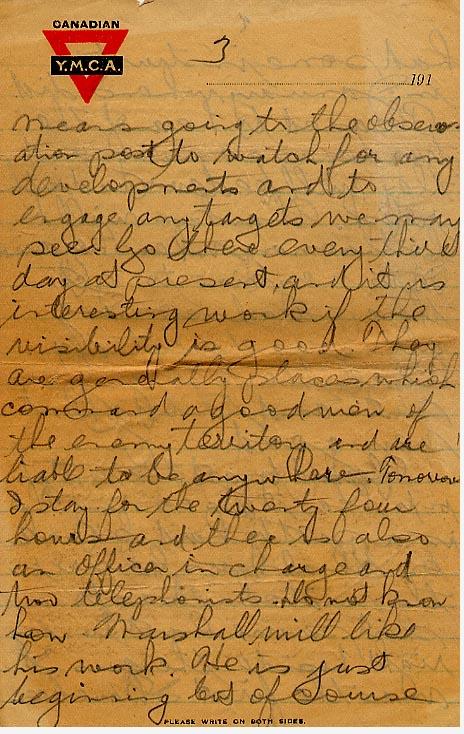 CANADIAN
Y.M.C.A.
3
191
means going to the observ-
ation post to watch for any
developments and to
engage any targets we may
see. Go there every third
day at present, and it is
interesting work if the
visibility is good. They
are generally places which
command a good view of
the enemy territory and are
liable to be anywhere. Tomorrow
I stay for the twenty four
hours and there is also
an Officer in charge and
two telephonists. Do not know
how Marshall will like
his work. He is just
beginning but of course
PLEASE WRITE ON BOTH SIDES.